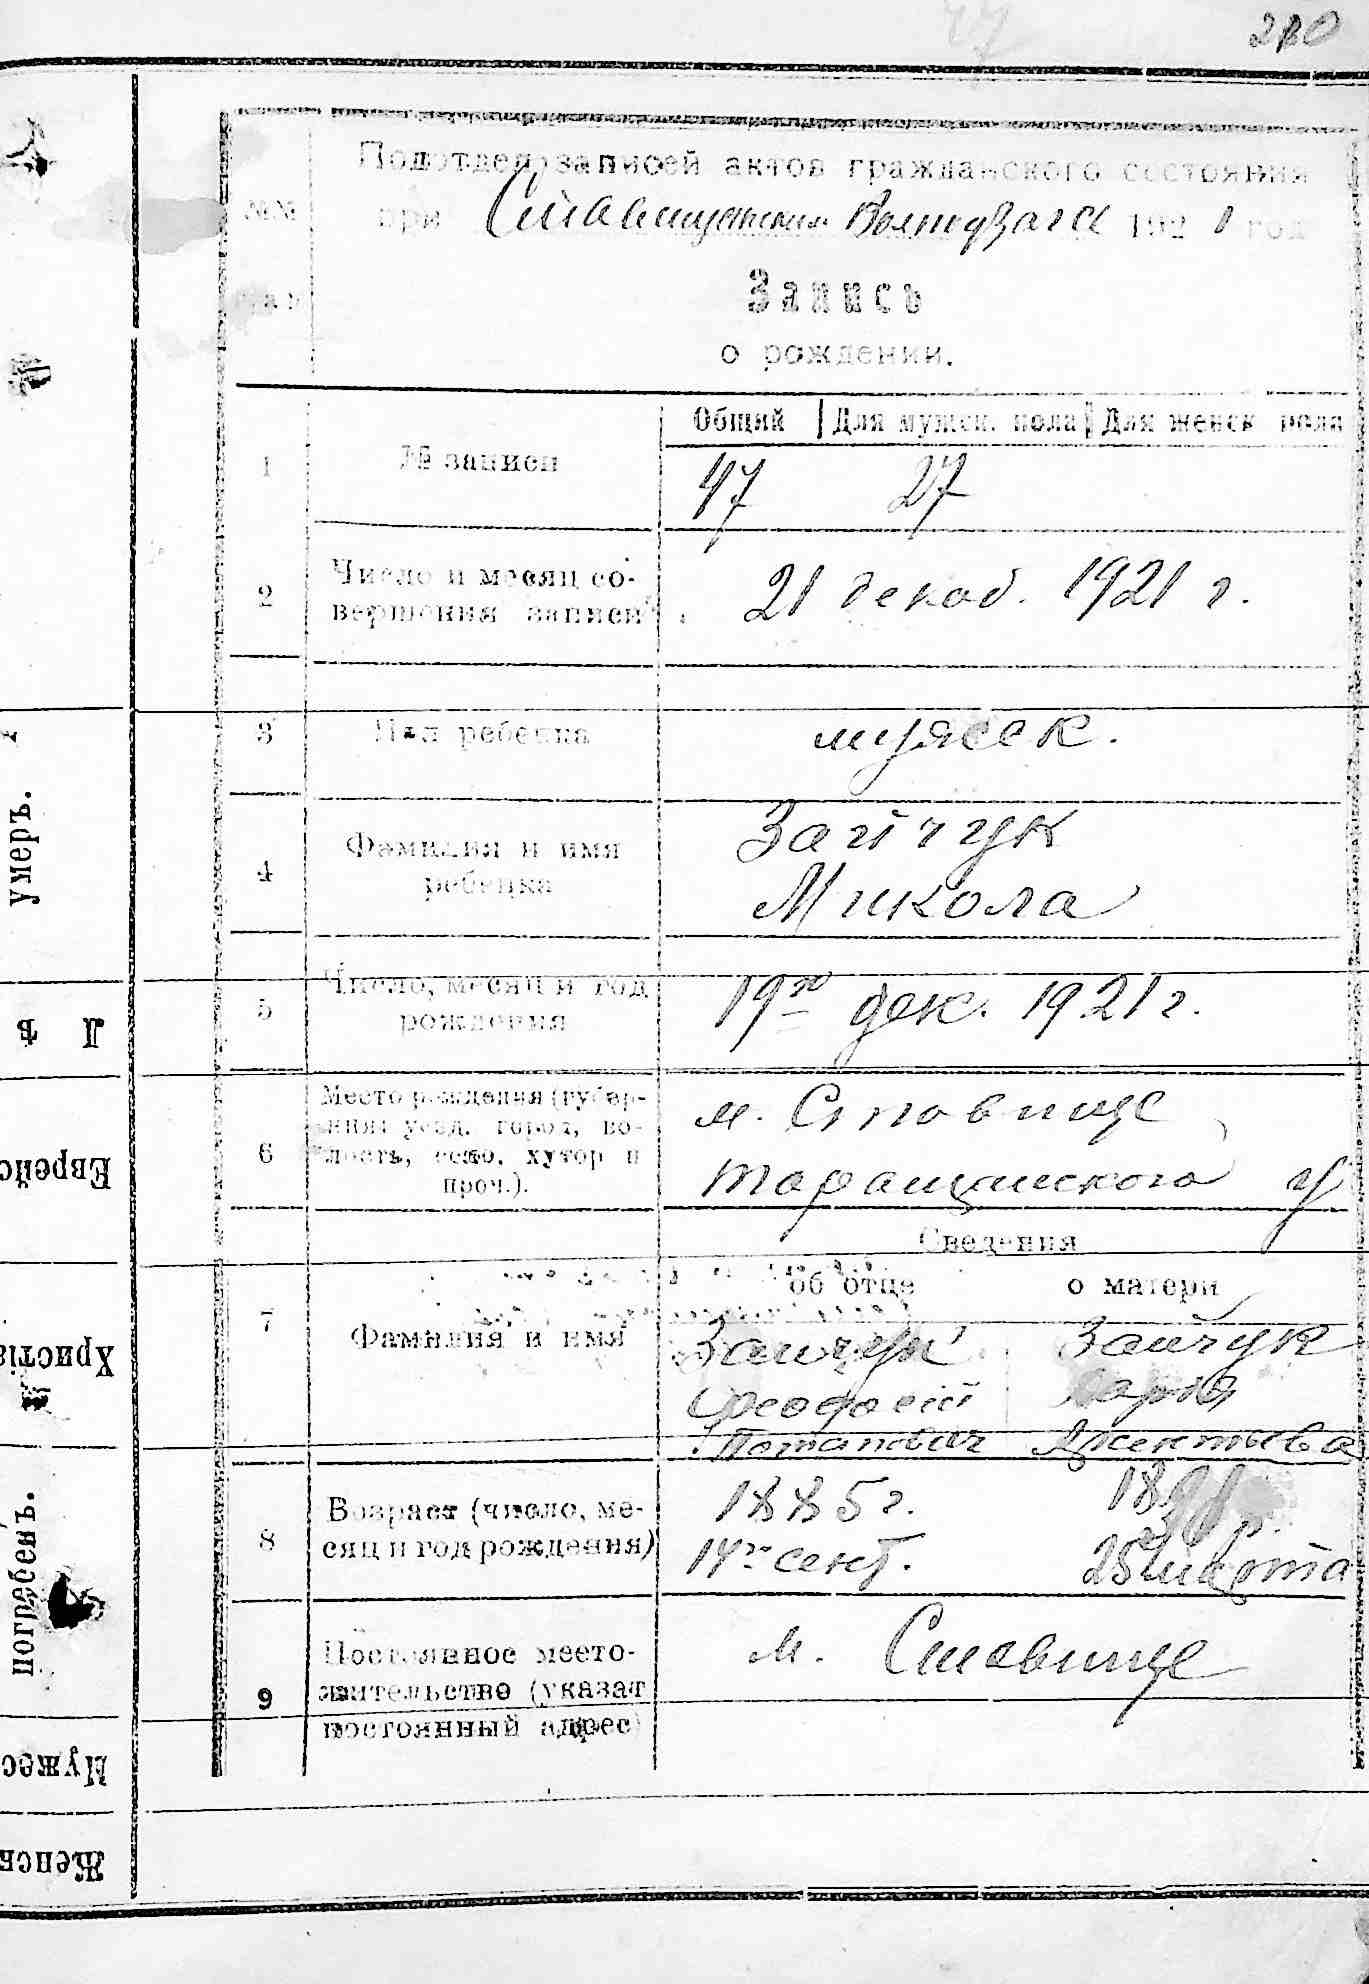 280
47
Подотдел записей актов гражданского состояния
№№
при Ставищенском 1921 год
Запись
о рождении.
Общий Для мужск. пола Для женск пола
1 № записи 47 27
2 Число и месяц со-
вершения записи 21 декаб. 1921 г.
3 ребенка мужеск.
4 Фамилия и имя
ребенка
Зайчук
Микола
5 Число, месяц и год
рождения 19го дек. 1921 г.
6 Место рождения (губер-
ния, уезд, город, во-
лость, село, хутор и
проч.).
м. Ставище
таращанского у.
Сведения
об отце о матери
7 Фамилия и имя
Зайчук Зайчук
Феодосій
Потапович
8 Возраст (число, ме-
сяц и год рождения)
1885 г.
14го сент. 25 марта
9 Постоянное место-
жительство (указат
постоянный адрес)
м. Ставище
умеръ.
Лѣ
Еврейс
Христіа
погребенъ.
Мужес
Женск